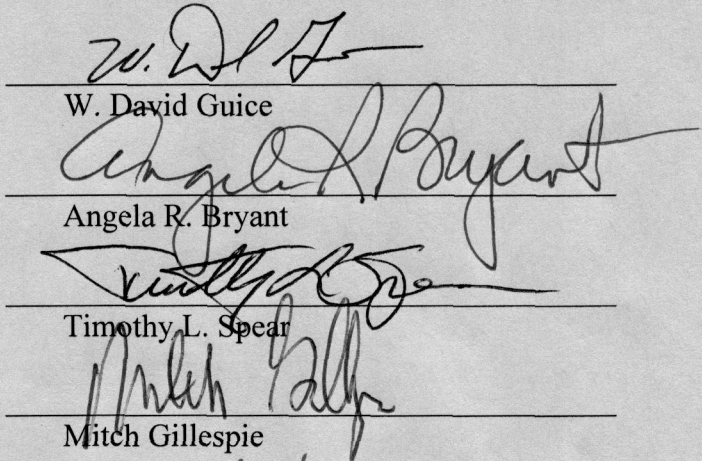 W. D G
W. David Guice
Angela R Bryant
Angela R. Bryant
Timothy L Spear
Timothy L. Spear
Mitch Gillespie
Mitch Gillespie